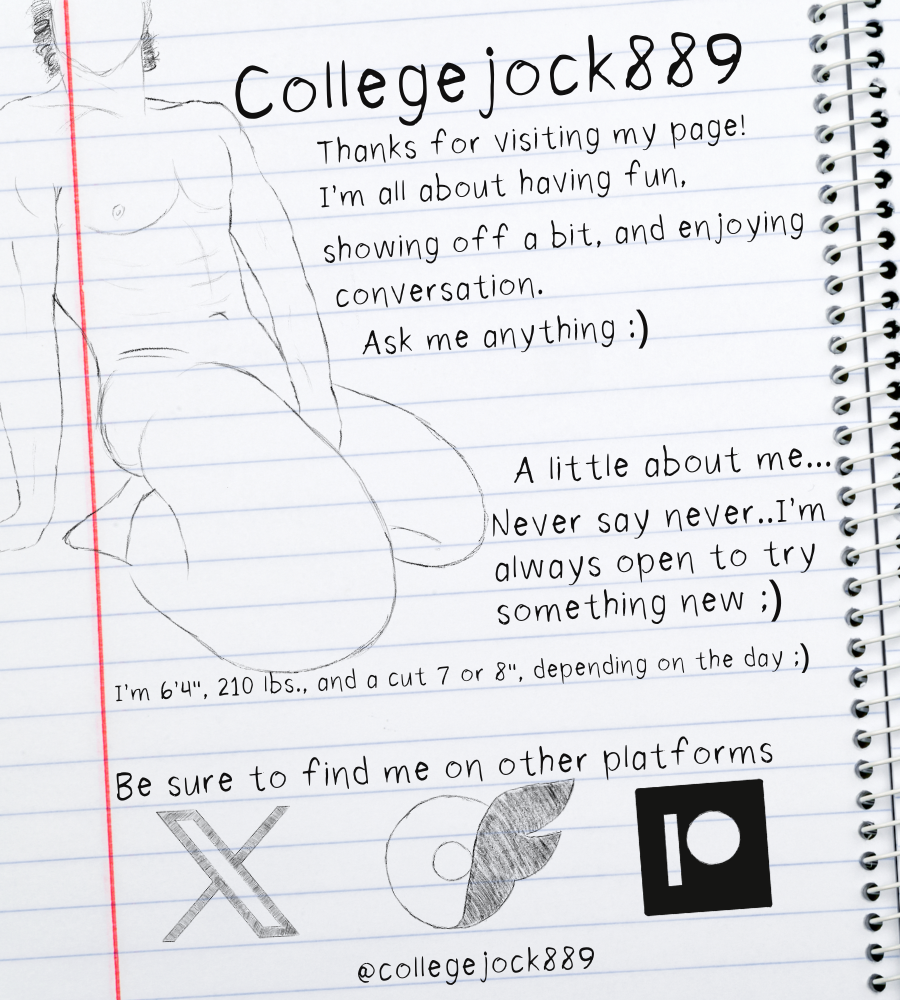 Collegejock889
Thanks for visiting my page!
I'm all about having fun,
showing off a bit, and enjoying
conversation.
Ask me anything :)
A little about me...
Never say never..I'm
always open to try
something new ;)
I'm 6'4", 210 lbs., and a cut 7 or 8", depending on the day ;)
Be sure to find me on other platforms
@collegejock889